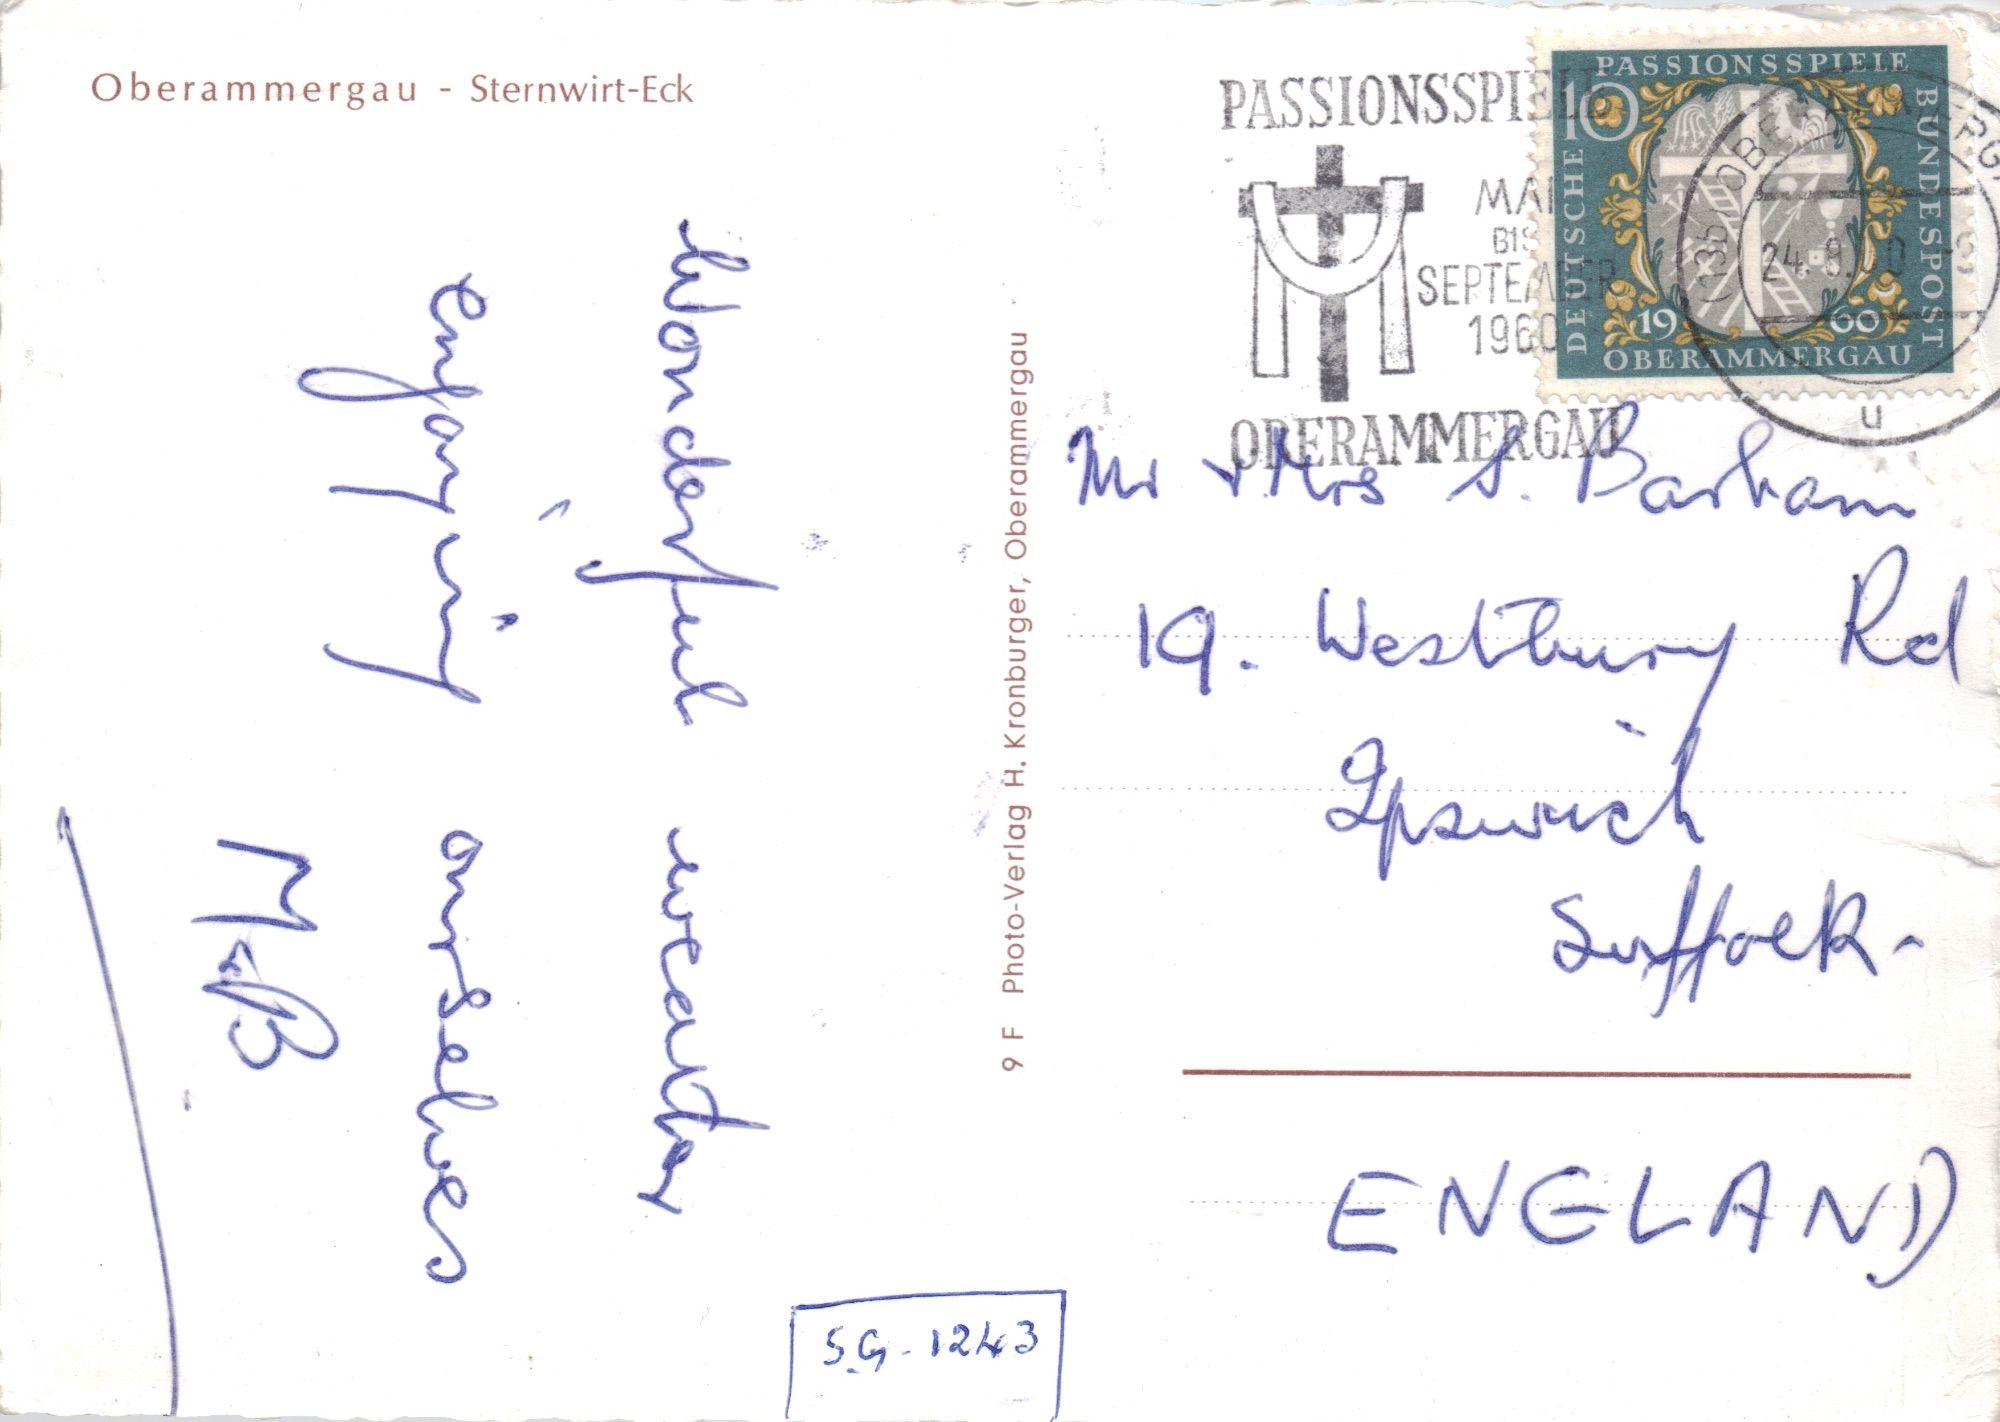 Oberammergau - Sternwirt-Eck
Wonderful weather
enjoying ourselves
M & B
9 F Photo-Verlag H. Kronburger, Oberammergau
PASSIONSSPIELE
MAI
BIS
SEPTEMBER
1960
OBERAMMERGAU
10
PASSIONSSPIELE
DEUTSCHE
BUNDESPOST
1960
OBERAMMERGAU
(13b) OBERAMMERGAU
u
Mr & Mrs S. Barham
19. Westbury Rd
Ipswich
Suffolk -
ENGLAND
S.G. 1243